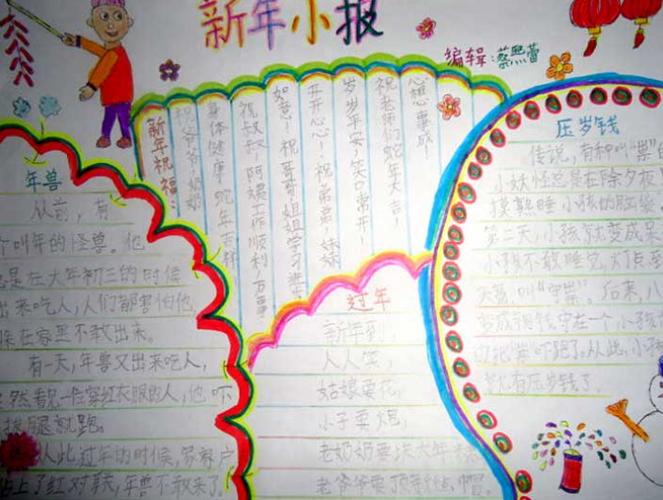 新年小报
编辑:蔡熙蕾
年兽
从前,有
个叫年的怪兽。他
总是在大年初三的时候
出来吃人,人们都害怕他,
躲在家里不敢出来。
有一天,年兽又出来吃人,
然看见一位穿红衣服的人,他吓
拔腿就跑。
从此过年的时候,家家户
贴上了红对联,年兽不敢来了。
新年祝福:
祝爷爷、奶奶
身体健康,蛇年吉祥
祝叔叔、阿姨工作顺利,万事
如意!祝哥哥、姐姐学习进步
开开心心!祝弟弟、妹妹
岁岁平安,笑口常开!
祝老师们蛇年大吉!
心想事成!
过年
新年到,
人人笑,
姑娘要花,
小子要炮,
老奶奶要块大年糕
老爷爷要顶新毡帽
压岁钱
传说,有种叫“祟”的
小妖怪总是在除夕夜
摸熟睡小孩的脑袋
第二天,小孩就变成
小孩不敢睡觉,灯点至
天亮,叫“守祟”。后来,八
变成铜钱守在一个小孩
把祟吓跑了。从此,小孩
就有压岁钱了。